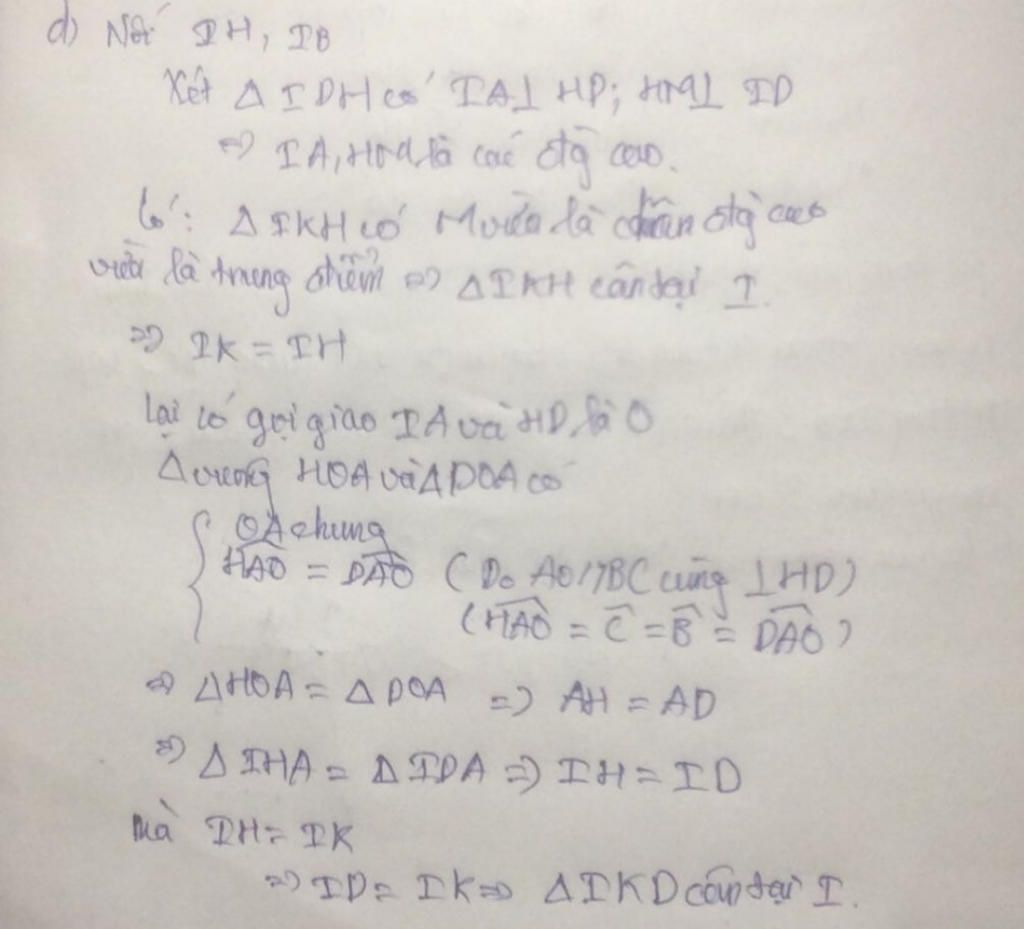 d) Nối IH, IB
Xét Δ IDH có IA⊥ HD; HM⊥ ID
=> IA, HM là các đg cao.
Có: Δ IKH có M vừa là chân đg cao
vừa là trung điểm => Δ IKH cân tại I.
=> IK = IH
Lại có gọi giao IA và HD là O
Δ vuông HOA và Δ DOA có
{ OA chung
HAO = DAO ( Do AO // BC cùng ⊥ HD )
( HAO = C = B = DAO )
=> Δ HOA = Δ DOA => AH = AD
=> Δ IHA = Δ IDA => IH = ID
mà IH = IK
=> ID = IK => Δ IKD cân tại I.